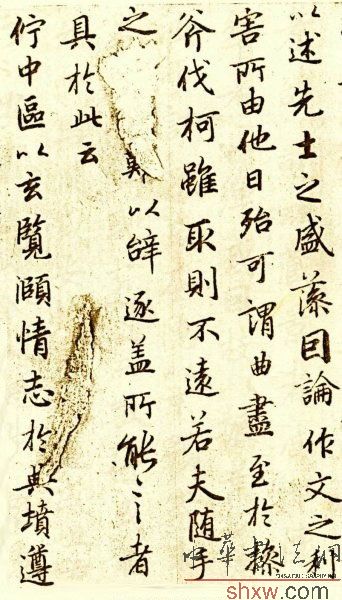 以述先士之盛藻因論作文之利
害所由他日殆可謂曲盡至於操
斧伐柯雖取則不遠若夫随手
之以辭逐盖所能言者
具於此云
佇中區以玄覽頤情志於典墳遵
中華書法網
shxw.com